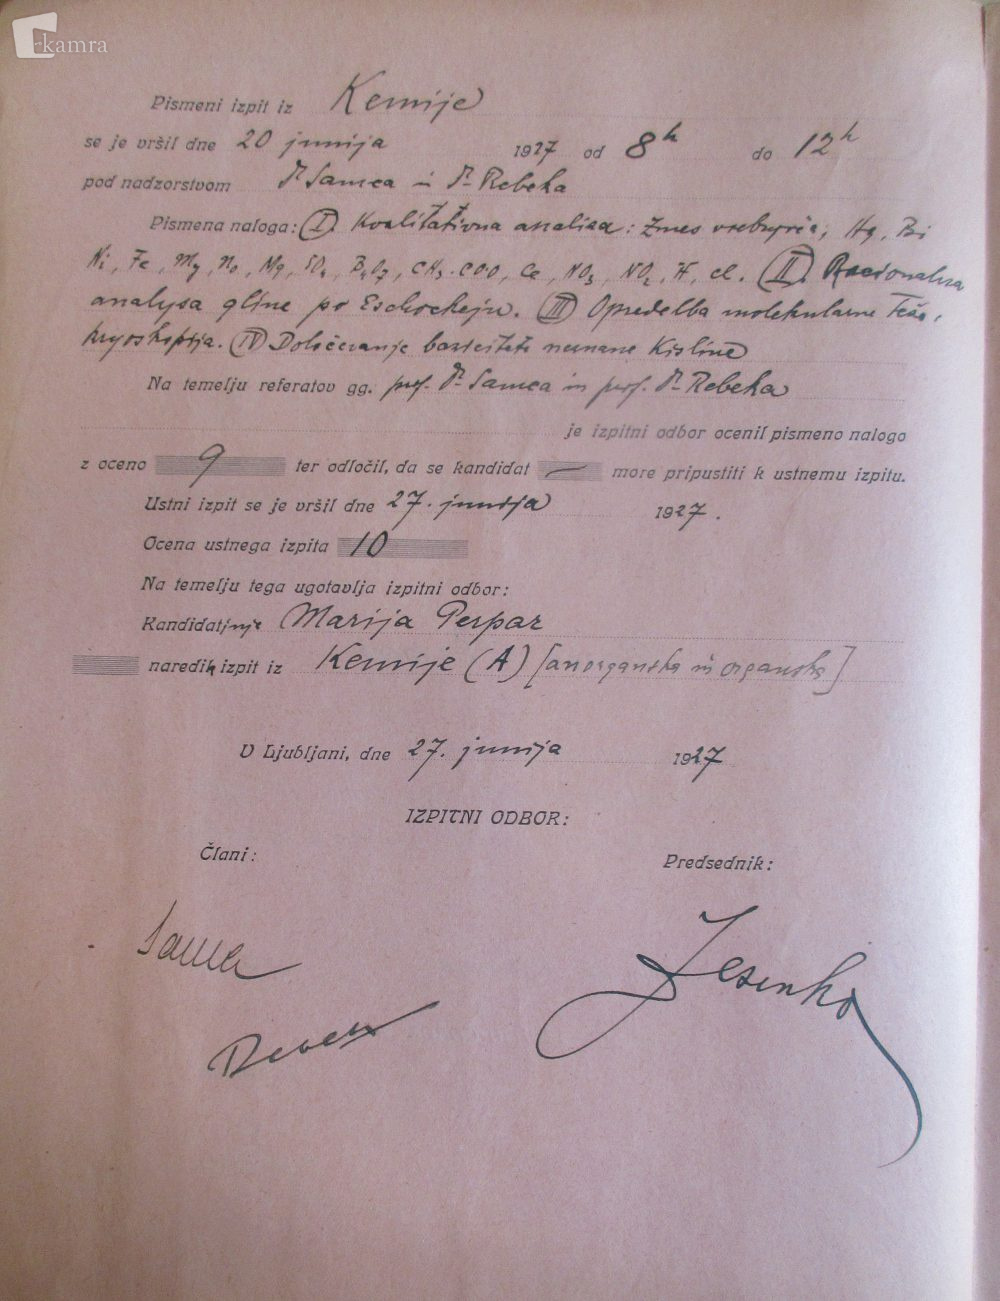 kamra
Pismeni izpit iz Kemije
se je vršil dne 20 junija 1927 od 8h do 12h
pod nadzorstvom Dr Samca in Dr Rebeka
Pismena naloga: I. Kvalitativna analiza: Zmes vsebujoča, Hg, Bi
Ni, Fe, Mg, Na, Mg, SO4, B4O7, CH3.COO, Ca, NO3, NO2, H, cl. II. Racionalna
analysa gline po. III Opredelba molekularne Teže,
kryoskopija. IV Določevanje basicitete neznane Kisline
Na temelju referatov gg. prof. Dr Samca in prof. Dr Rebeka
je izpitni odbor ocenil pismeno nalogo
z oceno 9 ter odločil, da se kandidat — more pripustiti k ustnemu izpitu.
Ustni izpit se je vršil dne 27. junija 1927.
Ocena ustnega izpita 10
Na temelju tega ugotavlja izpitni odbor:
Kandidatinja Marija Perpar
naredila izpit iz Kemije (A) [anorganska in organska]
V Ljubljani, dne 27. junija 1927
IZPITNI ODBOR:
Člani: Predsednik:
Samec Jesenko
Rebek